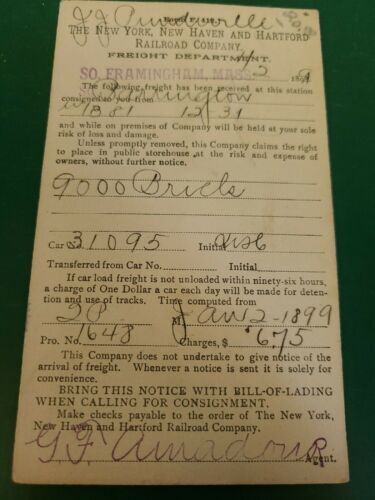 J J
Form F
THE NEW YORK, NEW HAVEN AND HARTFORD
RAILROAD COMPANY.
FREIGHT DEPARTMENT.
SO. FRAMINGHAM, MASS. 1/2 189
The following freight has been received at this station
consigned to you from
1881 12 31
and while on premises of Company will be held at your sole
risk of loss and damage.
Unless promptly removed, this Company claims the right
to place in public storehouse at the risk and expense of
owners, without further notice.
9000 Brick
Car 31095 Initial
Transferred from Car No. Initial
If car load freight is not unloaded within ninety-six hours,
a charge of One Dollar a car each day will be made for deten-
tion and use of tracks. Time computed from
2 P M. Jan 2 - 1899
Pro. No. 1648 Charges, $ 6.75
This Company does not undertake to give notice of the
arrival of freight. Whenever a notice is sent it is solely for
convenience.
BRING THIS NOTICE WITH BILL-OF-LADING
WHEN CALLING FOR CONSIGNMENT.
Make checks payable to the order of The New York,
New Haven and Hartford Railroad Company.
G F Amadon Agent.